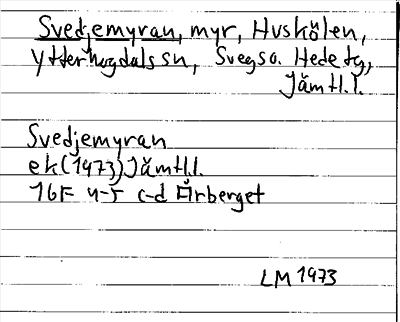 Svedjemyran, myr, Huskölen,
Ytterhogdals sn, Svegs o. Hede tg,
Jämtl.l.
Svedjemyran
ek (1973) Jämtl.l.
16F 4-5 c-d Örberget
LM 1973